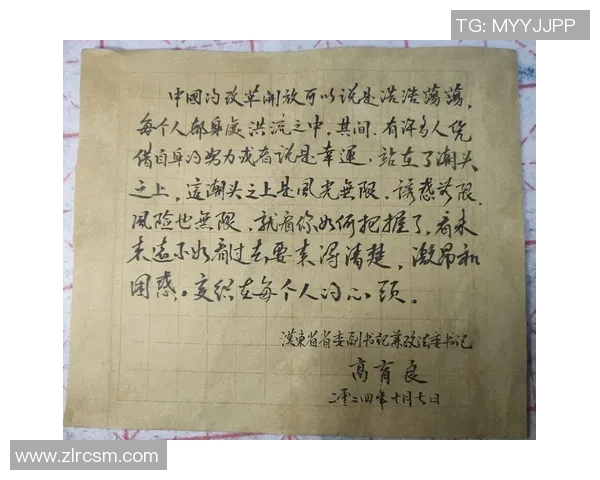 TG: MYYJJPP
中國的改革開放可以说是浩浩蕩蕩,
每个人都身處洪流之中。其间,有许多人凭
借自身的努力或者说是幸運,站在了潮头
之上,這潮头之上是風光無限,誘惑無限,
風险也無限,就看你如何把握了,看未
来远不如看过去要来得清楚,激昂和
困惑,交織在每个人的心頭。
漢東省省委副书記兼政法委书记
高育良
二零二四年十月七日
www.zlrcsm.com